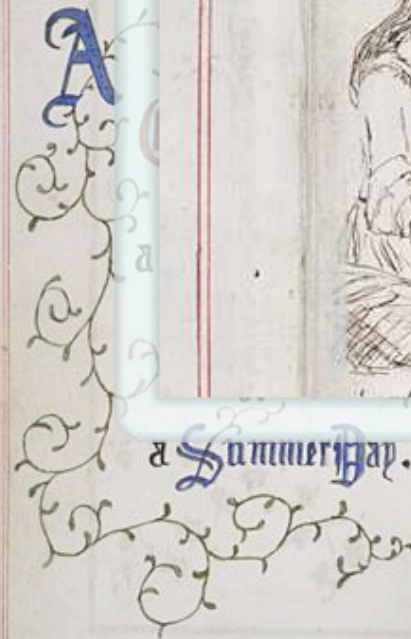 A
a
a Summer Day.